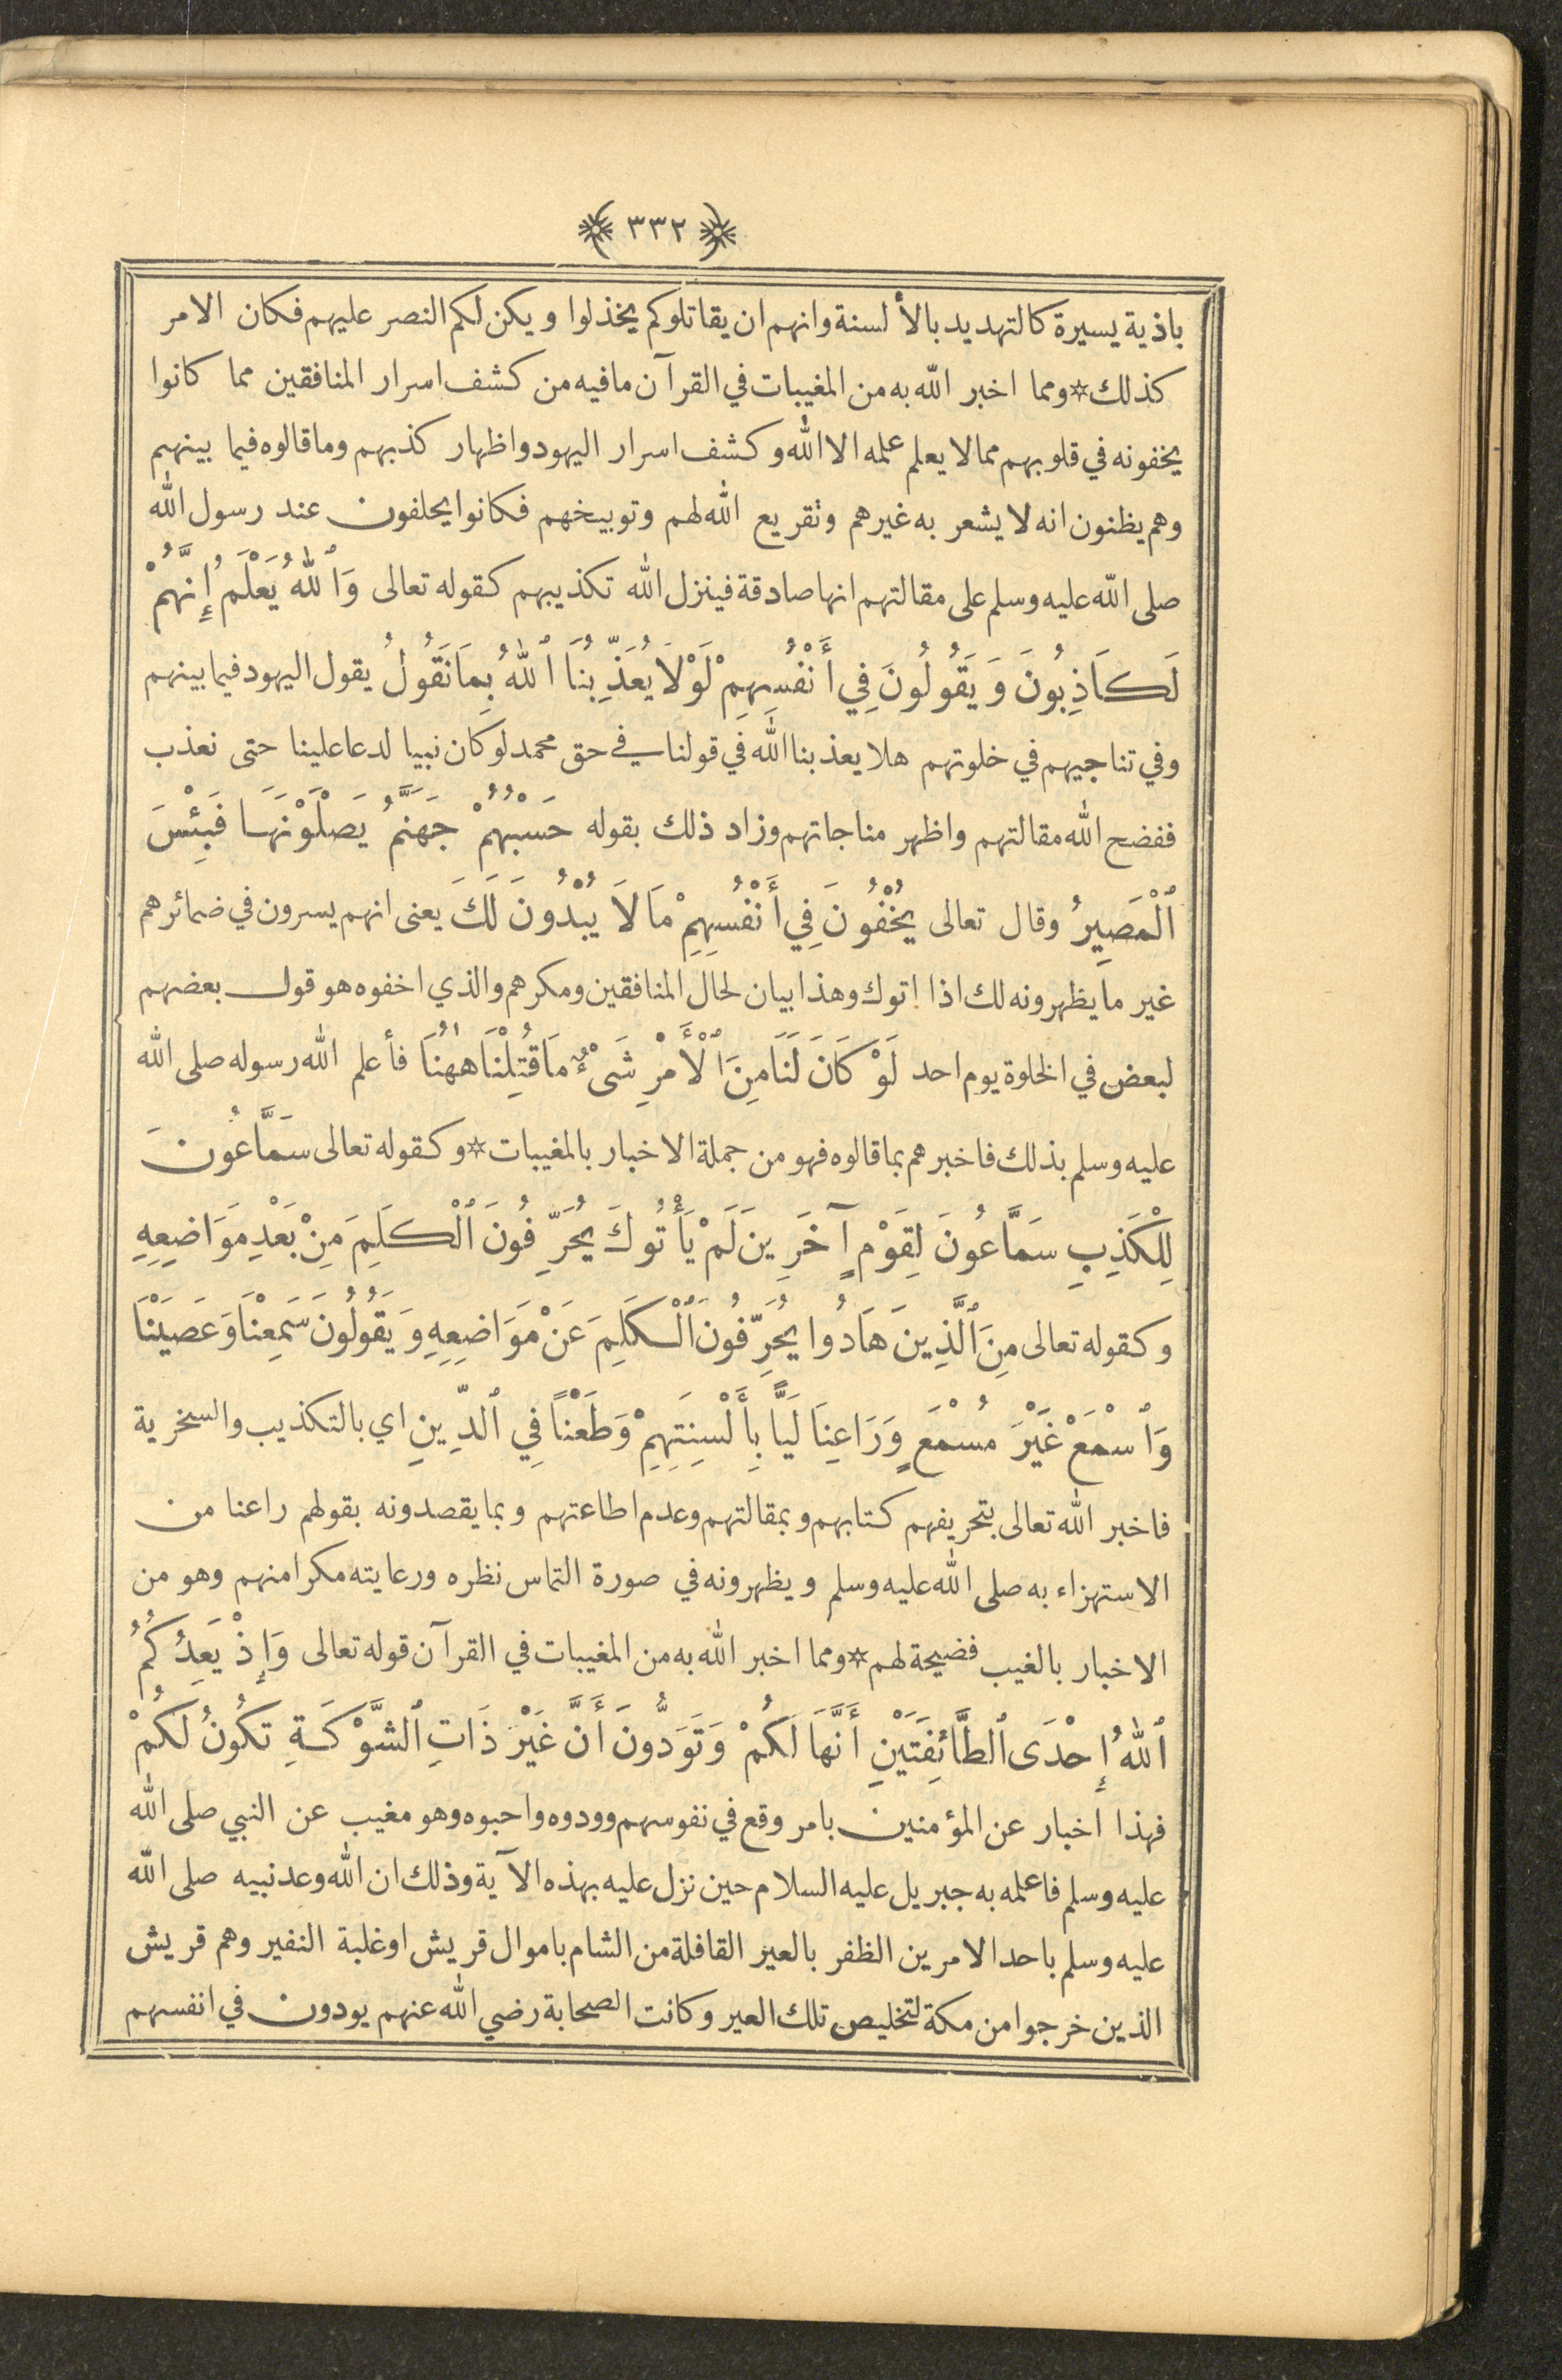 ﴿ ٣٣٢ ﴾
باذية يسيرة كالتهديد بالألسنة وانهم ان يقاتلوكم يخذلوا ويكن لكم النصر عليهم فكان الامر
كذلك * ومما اخبر الله به من المغيبات في القرآن ما فيه من كشف اسرار المنافقين مما كانوا
يخفونه في قلوبهم مما لا يعلم علمه الا الله وكشف اسرار اليهود واظهار كذبهم وما قالوه فيما بينهم
وهم يظنون انه لا يشعر به غيرهم وتقريع الله لهم وتوبيخهم فكانوا يحلفون عند رسول الله
صلى الله عليه وسلم على مقالتهم انها صادقة فينزل الله تكذيبهم كقوله تعالى وَٱللهُ يَعْلَمُ إِنَّهُمْ
لَكَاذِبُونَ وَيَقُولُونَ فِي أَنْفُسِهِمْ لَوْلَا يُعَذِّبُنَا ٱللهُ بِمَا نَقُولُ يقول اليهود فيما بينهم
وفي تناجيهم في خلوتهم هلا يعذبنا الله في قولنا في حق محمد لو كان نبيا لدعا علينا حتى نعذب
ففضح الله مقالتهم واظهر مناجاتهم وزاد ذلك بقوله حَسْبُهُمْ جَهَنَّمُ يَصْلَوْنَهَا فَبِئْسَ
ٱلْمَصِيرُ وقال تعالى يُخْفُونَ فِي أَنْفُسِهِمْ مَا لَا يُبْدُونَ لَكَ يعنى انهم يسرون في ضمائرهم
غير ما يظهرونه لك اذا اتوك وهذا بيان لحال المنافقين ومكرهم والذي اخفوه هو قول بعضهم
لبعض في الخلوة يوم احد لَوْ كَانَ لَنَا مِنَ ٱلْأَمْرِ شَىْءٌ مَا قُتِلْنَا هٰهُنَا فأعلم الله رسوله صلى الله
عليه وسلم بذلك فاخبرهم بما قالوه فهو من جملة الاخبار بالمغيبات * وكقوله تعالى سَمَّاعُونَ
لِلْكَذِبِ سَمَّاعُونَ لِقَوْمٍ آخَرِينَ لَمْ يَأْتُوكَ يُحَرِّفُونَ ٱلْكَلِمَ مِنْ بَعْدِ مَوَاضِعِهِ
وكقوله تعالى مِنَ ٱلَّذِينَ هَادُوا يُحَرِّفُونَ ٱلْكَلِمَ عَنْ مَوَاضِعِهِ وَيَقُولُونَ سَمِعْنَا وَعَصَيْنَا
وَٱسْمَعْ غَيْرَ مُسْمَعٍ وَرَاعِنَا لَيًّا بِأَلْسِنَتِهِمْ وَطَعْنًا فِي ٱلدِّينِ اي بالتكذيب والسخرية
فاخبر الله تعالى بتحريفهم كتابهم وبمقالتهم وعدم اطاعتهم وبما يقصدونه بقولهم راعنا من
الاستهزاء به صلى الله عليه وسلم ويظهرونه في صورة التماس نظره ورعايته مكرا منهم وهو من
الاخبار بالغيب فضيحة لهم * ومما اخبر الله به من المغيبات في القرآن قوله تعالى وَإِذْ يَعِدُكُمُ
ٱللهُ إِحْدَى ٱلطَّائِفَتَيْنِ أَنَّهَا لَكُمْ وَتَوَدُّونَ أَنَّ غَيْرَ ذَاتِ ٱلشَّوْكَةِ تَكُونُ لَكُمْ
فهذا اخبار عن المؤمنين بامر وقع في نفوسهم وودوه واحبوه وهو مغيب عن النبي صلى الله
عليه وسلم فاعلمه به جبريل عليه السلام حين نزل عليه بهذه الآية وذلك ان الله وعد نبيه صلى الله
عليه وسلم باحد الامرين الظفر بالعير القافلة من الشام باموال قريش او غلبة النفير وهم قريش
الذين خرجوا من مكة لتخليص تلك العير وكانت الصحابة رضي الله عنهم يودون في انفسهم